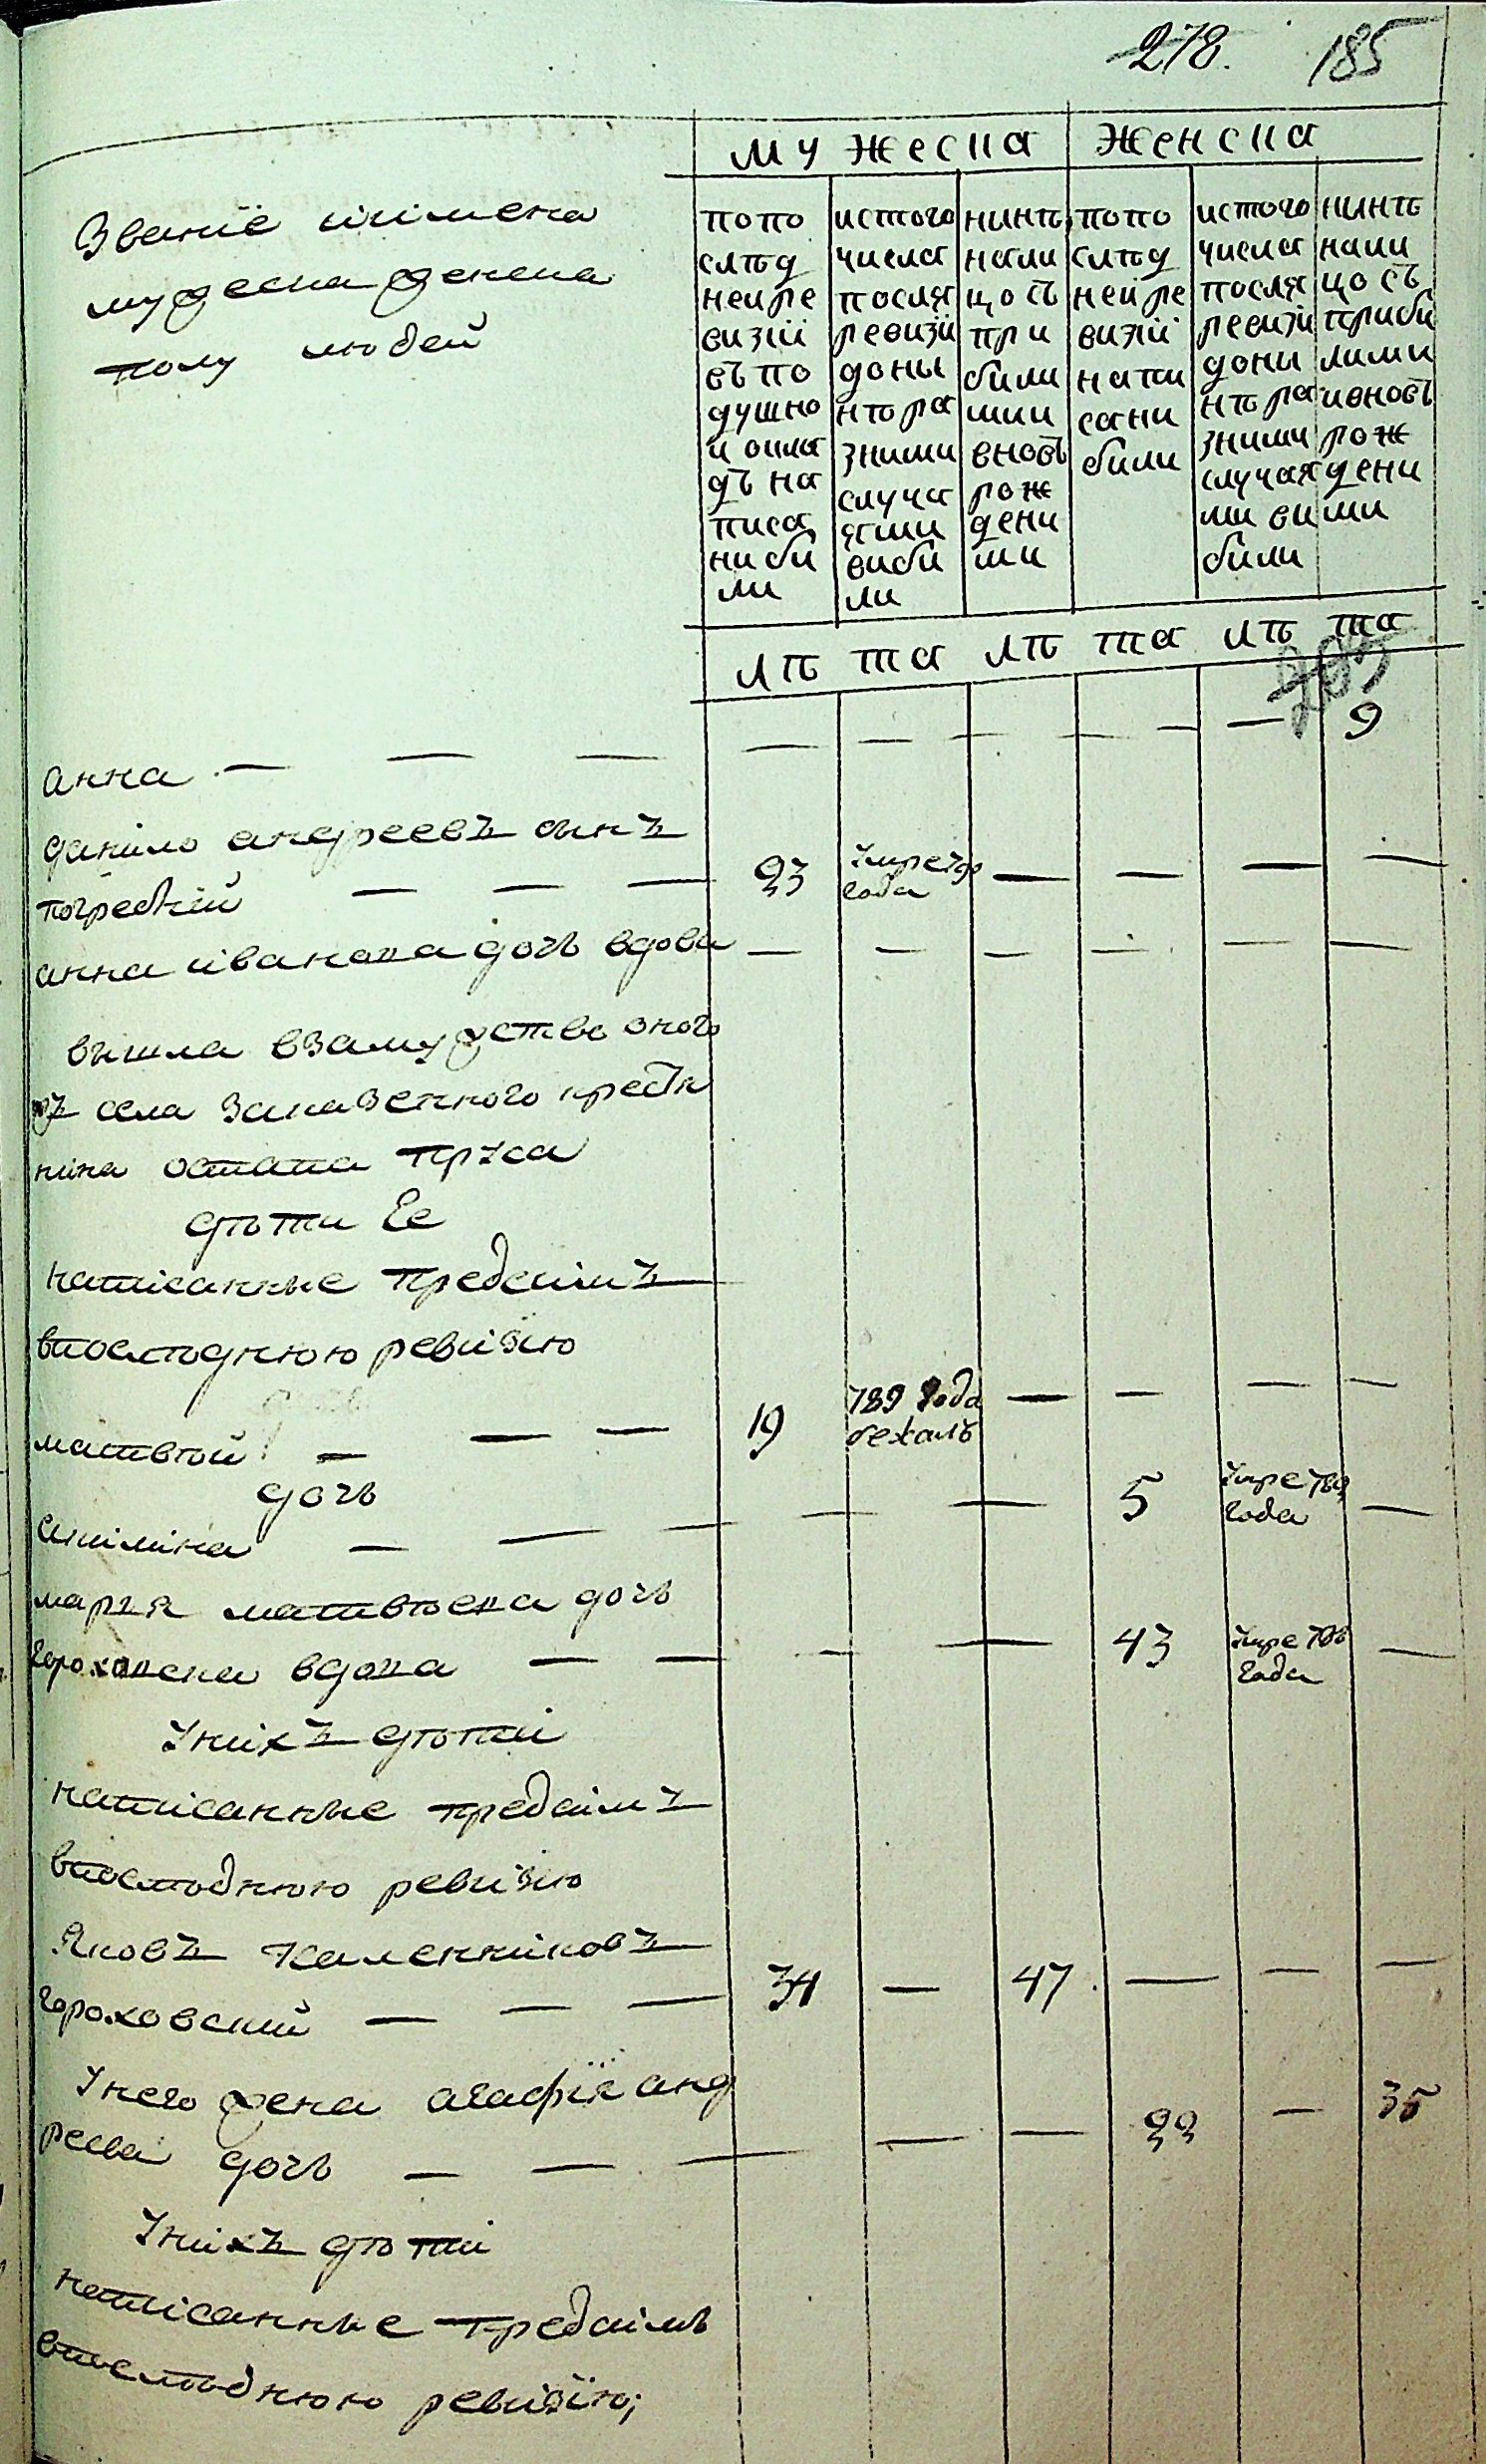 278. 185
мужеска женска
Званїе иимена
мужеска женска
полу людей
попо
слѣд
неире
визїи
въпо
душно
й окла
дъ на
писа
ни би
ли
истого
числа
посля
ревизїи
доны
нѣ ра
зними
случа
ями
виби
ли
нинѣ
нали
цо съ
при
били
ми и
вновъ
рож
дени
ми
попо
слѣд
ней ре
визїи
напи
сани
били
истого
числа
посля
ревизїи
дони
нѣ ра
зними
случая
ми ви
били
нинѣ
нали
цо съ
приби
лими
ивновъ
рож
дени
ми
лѣ та лѣ та лѣ та
анна — — — — — — — — — 9
данило андреевъ синъ
— — — 23 Умре 790 года — — — —
анна иванова дочь вдова — — — — — —
вышла взамужство оного
жъ села заказенного крестя
нина остапа пруса
дѣти Ее
написанние предсимъ
впослѣднюю ревизїю
матвѣй — — — 19 789 года бежалъ — — — —
дочь
акилина — — — — — 5 Умре 789 года —
марья матвѣева дочь
гороховска вдова — — — — 43 Умре 786 года —
Унихъ дѣти
написанние предсимъ
впослѣднюю ревизїю
Яковъ каленниковъ
гороховский — — — 34 — 47 — — —
Унего жена агафїя анд
реева дочь — — — — — 22 — 35
Унихъ дѣти
написанние предсимъ
впослѣднюю ревизїю;